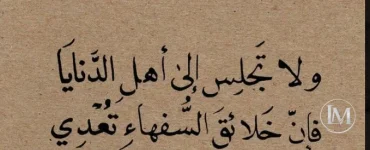 ولا تَجلِس إلىٰ أهلِ الدَّنايَا
فإنّ خَلائقَ السُّفهاءِ تُعْدِي
IM